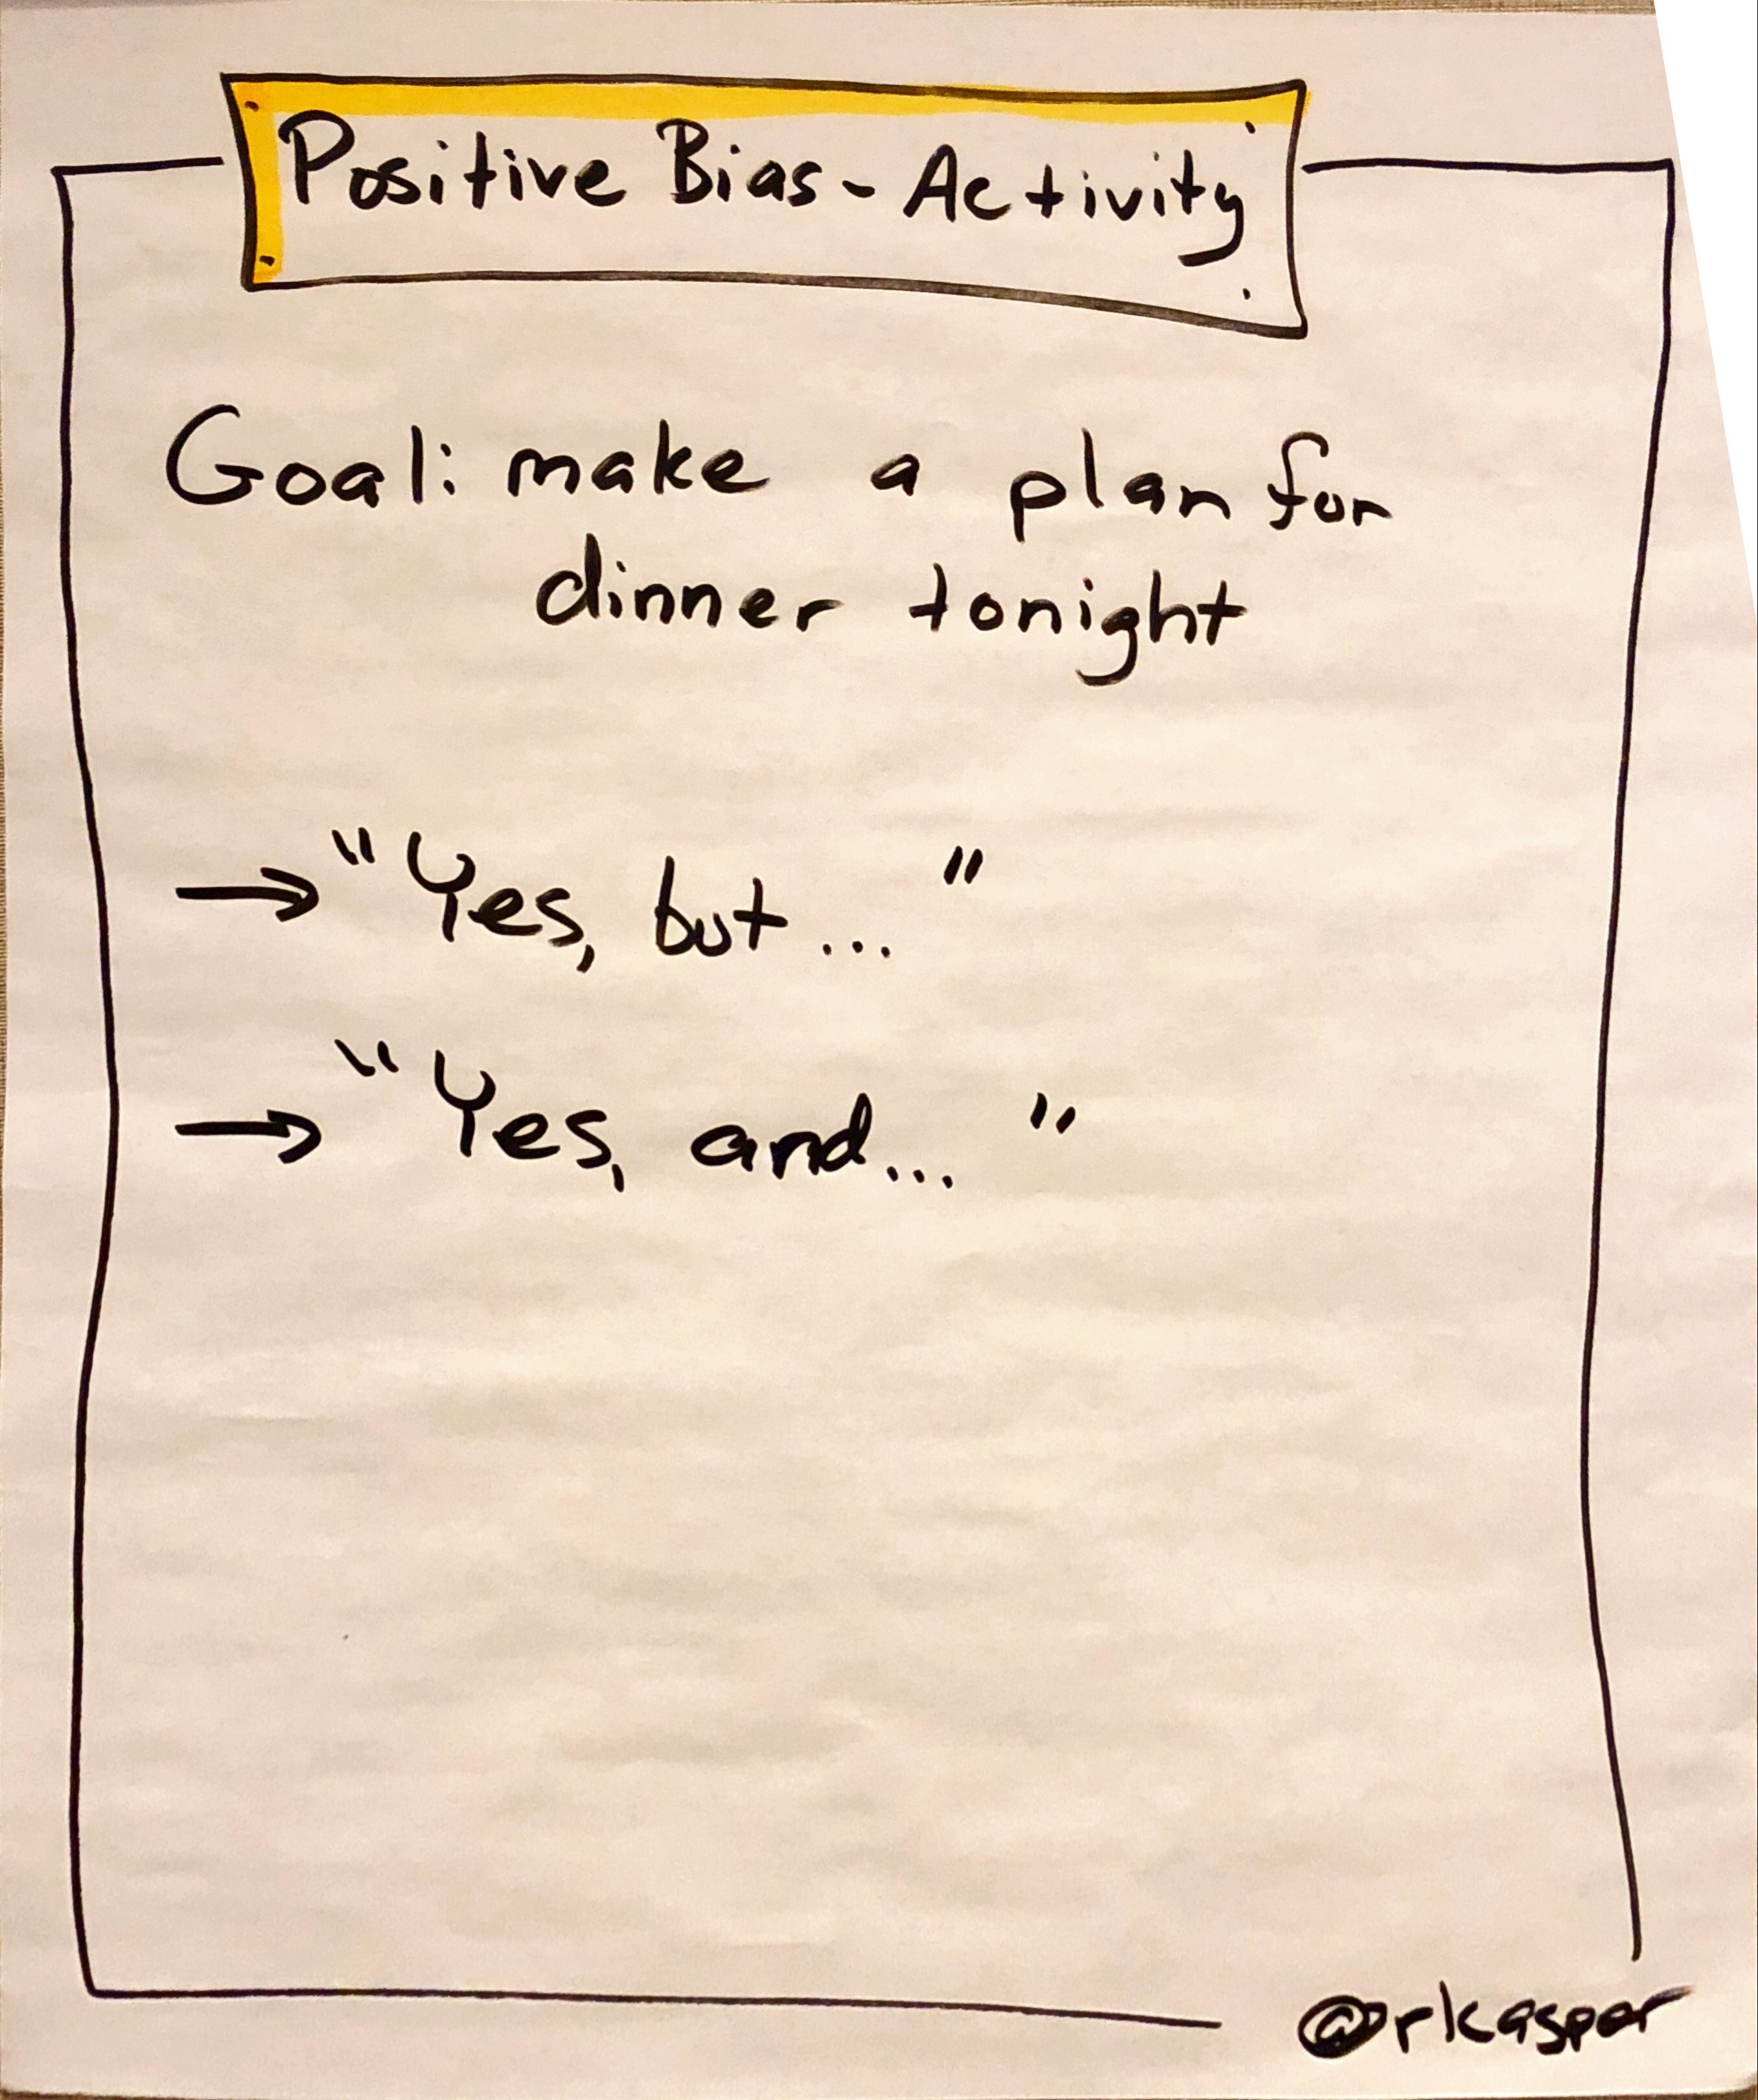 Positive Bias - Activity
Goal: make a plan for
dinner tonight
→ "Yes, but ..."
→ "Yes, and..."
@rkasper